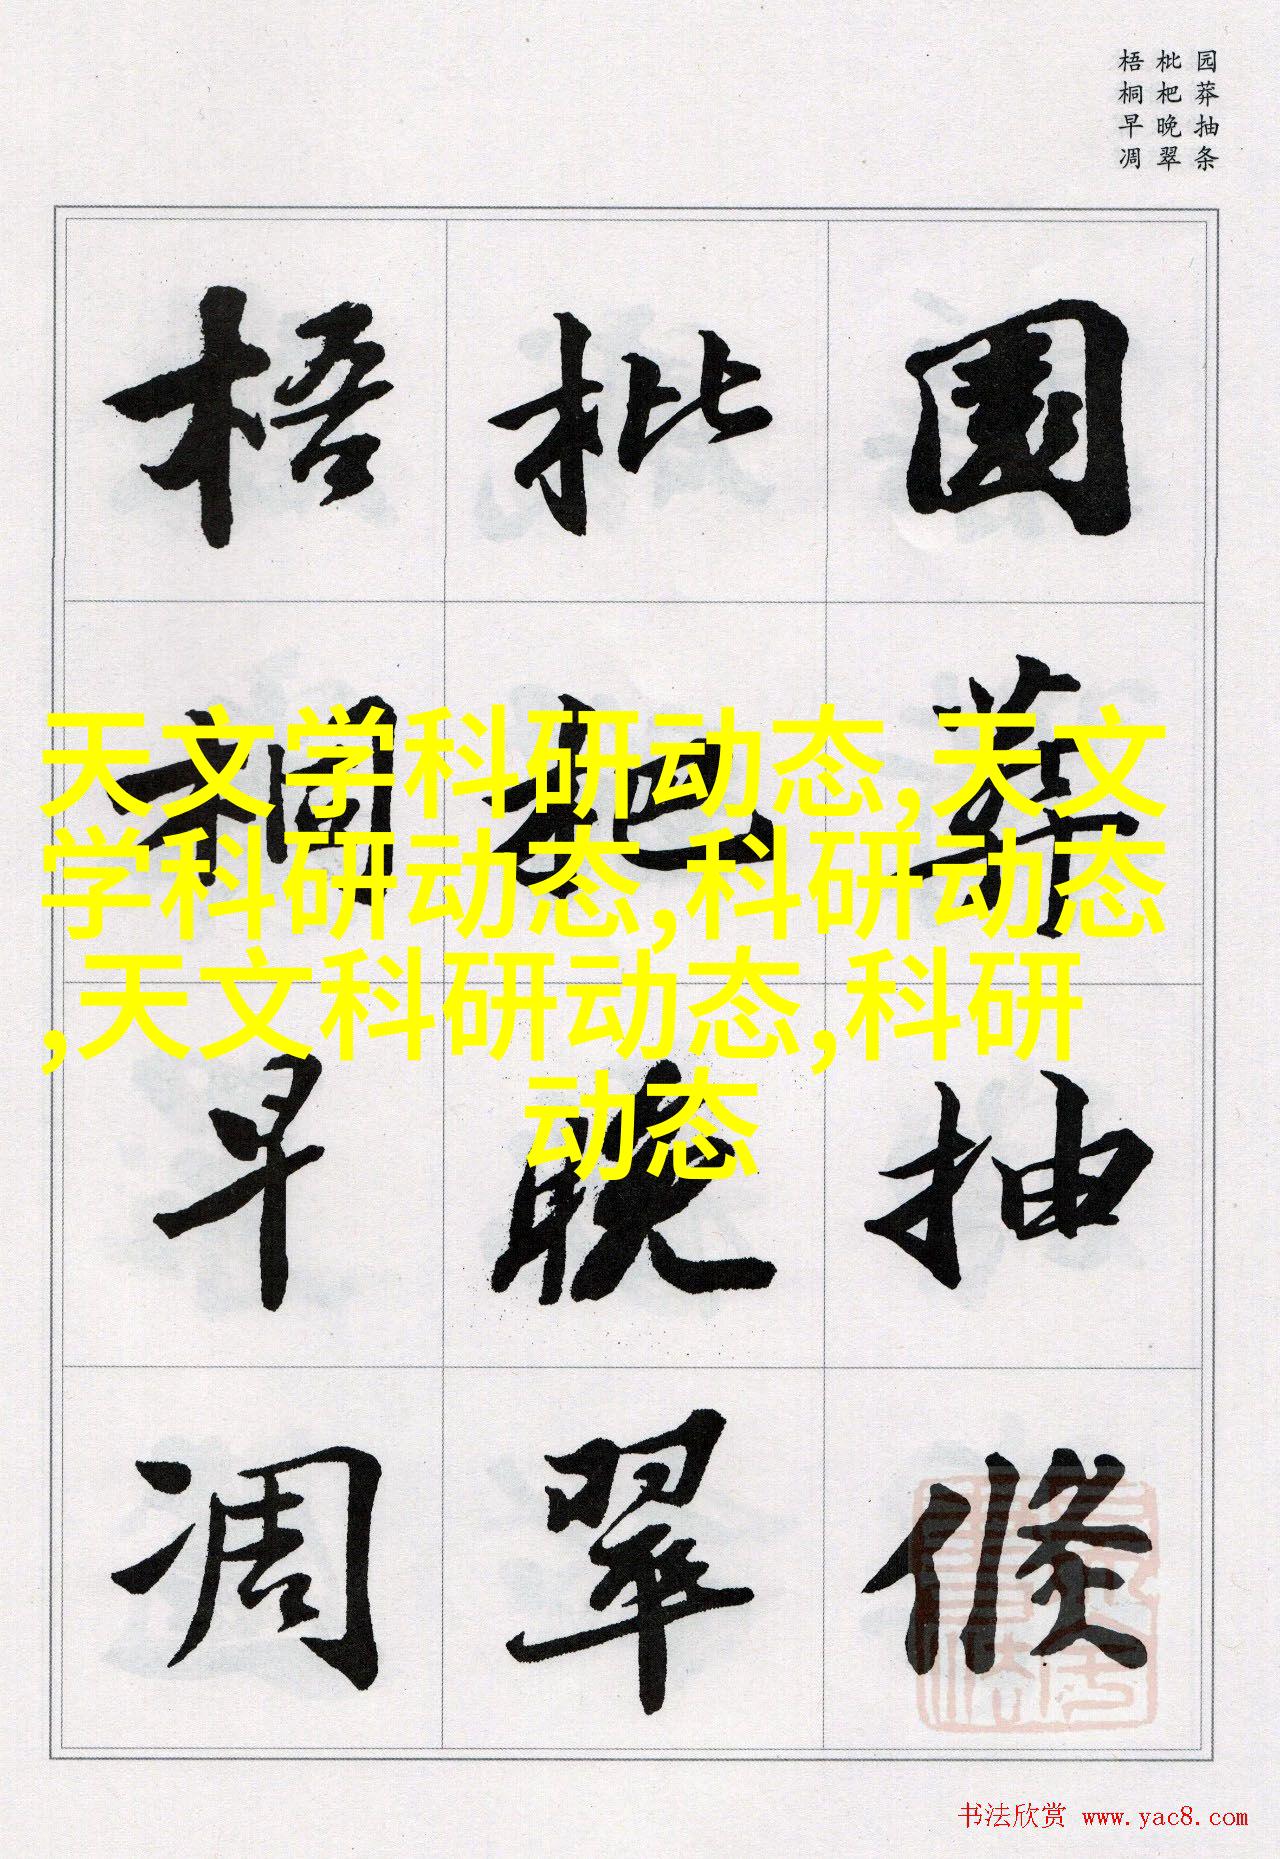 园莽抽条
枇杷晚翠
梧桐早凋
園莽抽條
枇杷晚翠
梧桐早凋
天文学科研动态,天文
学科研动态,科研动态
,天文科研动态,科研
动态
书法欣赏 www.yac8.com